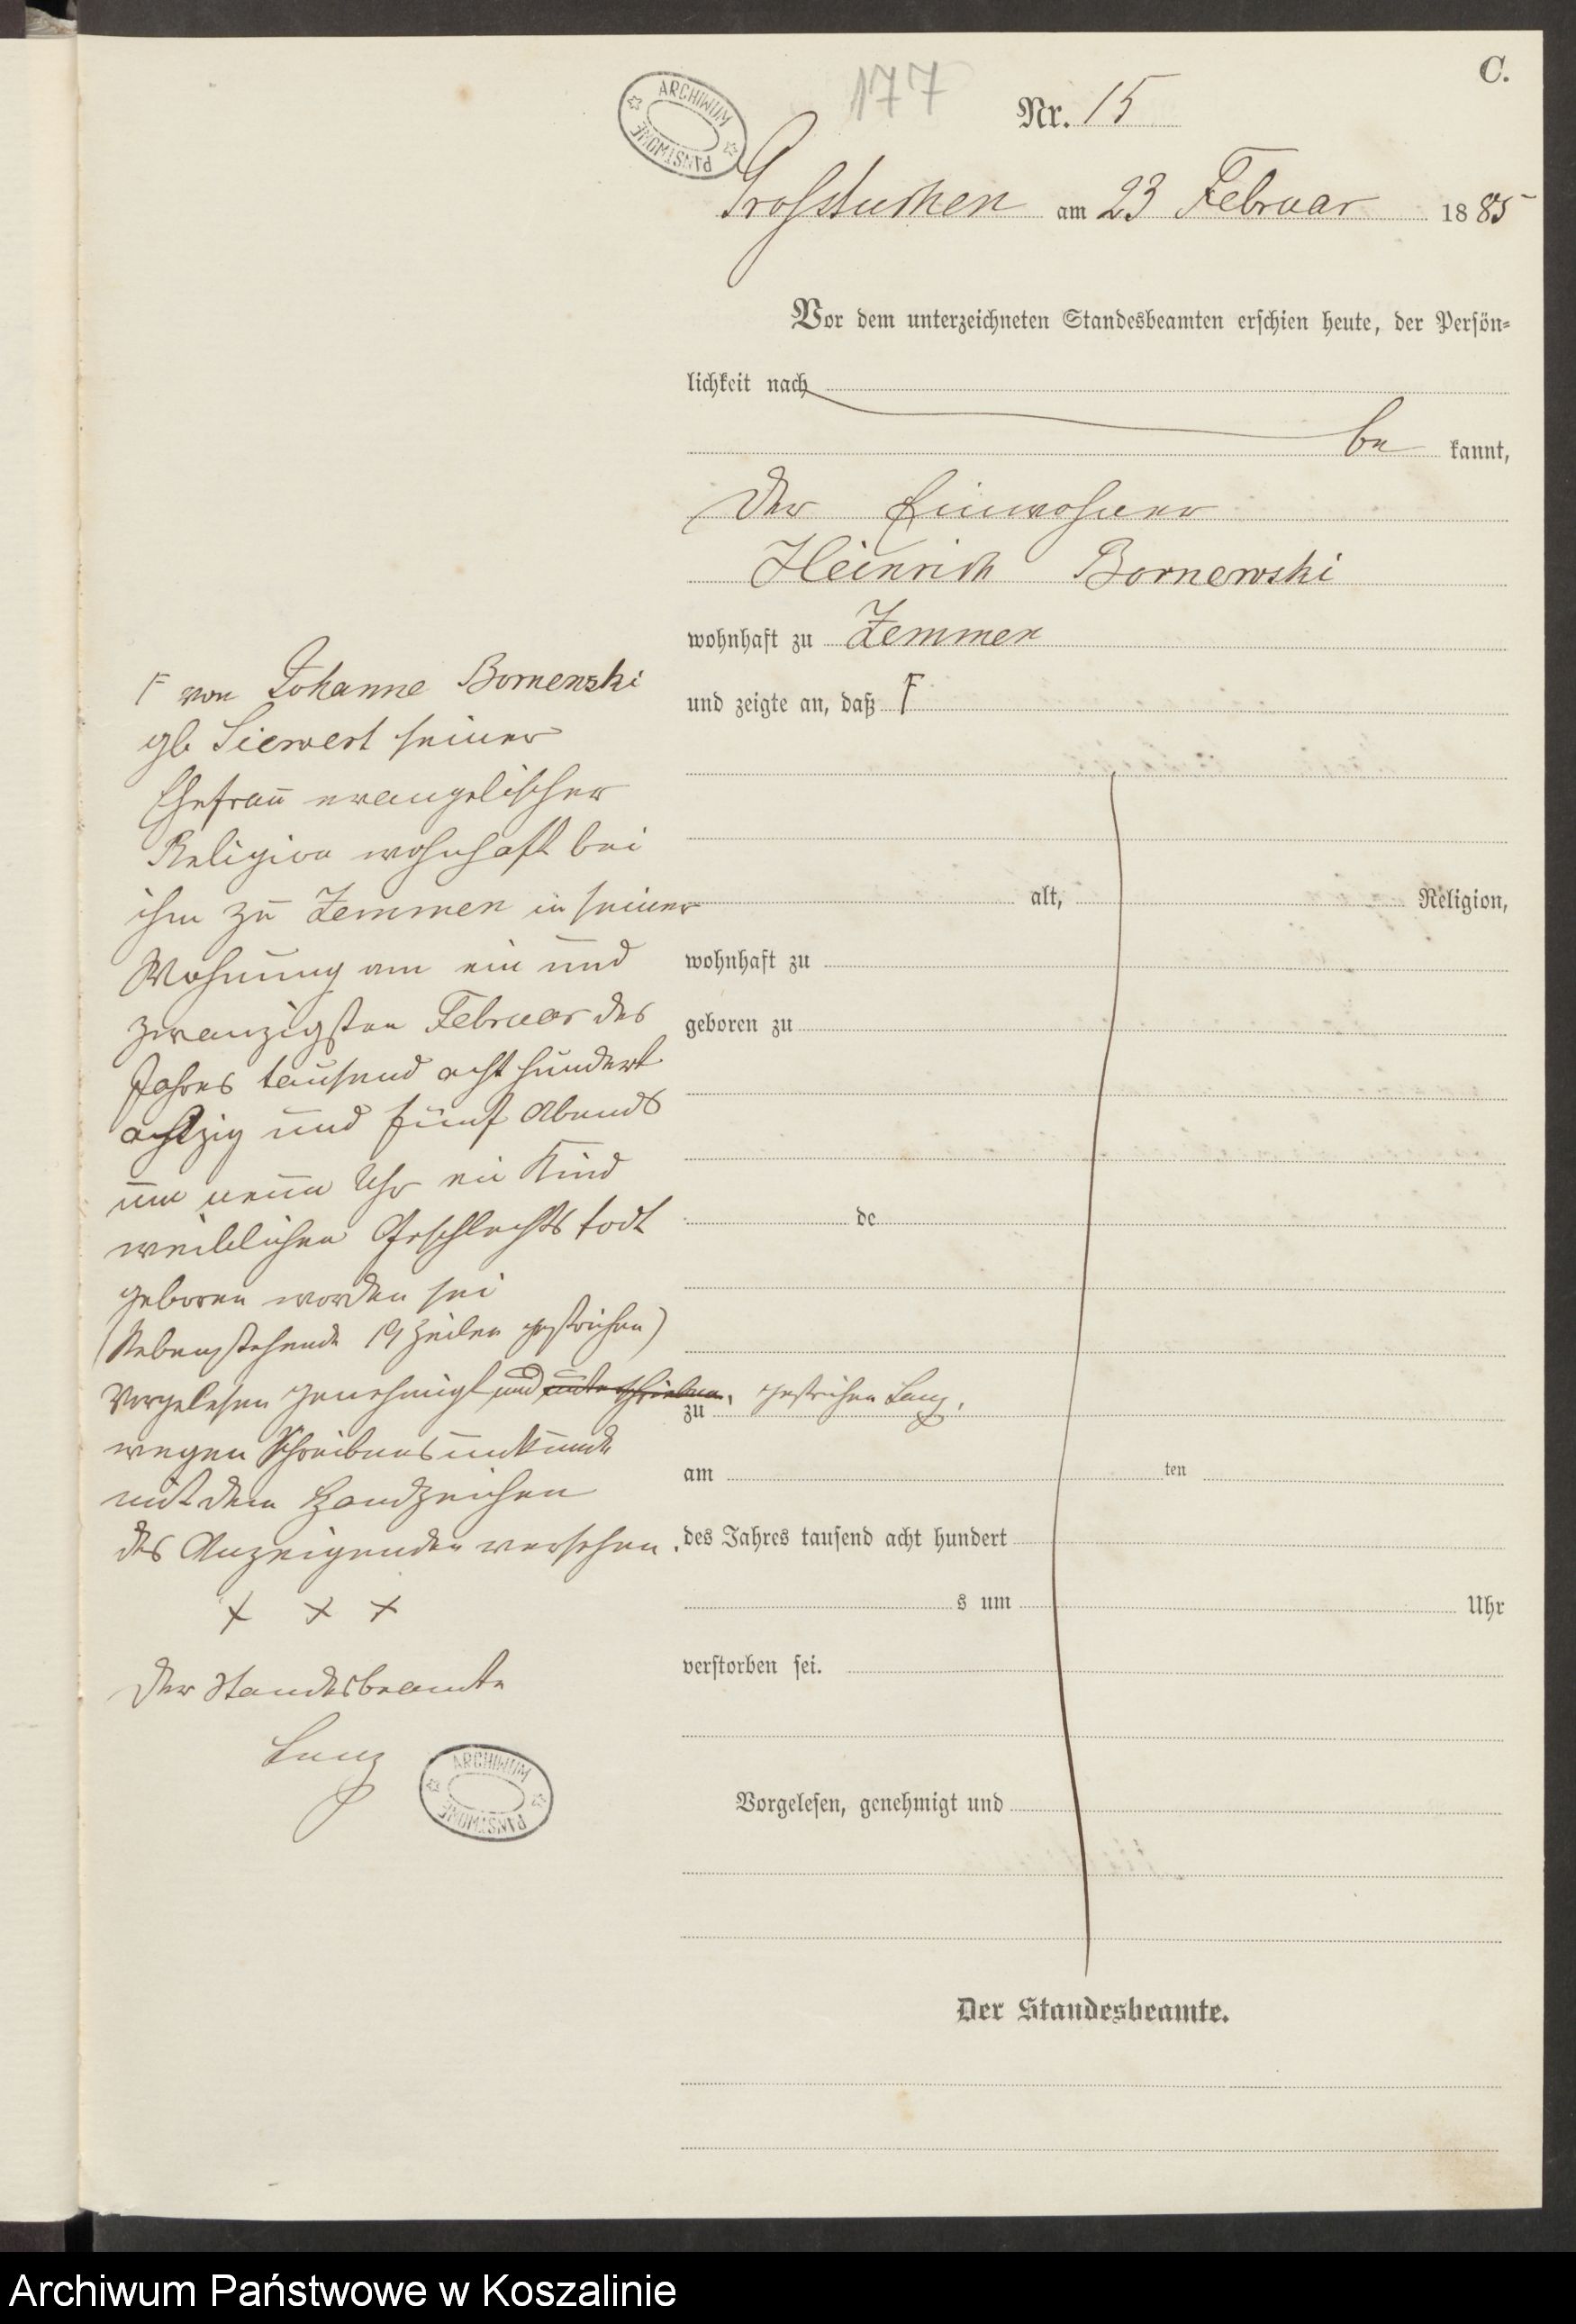 C.
ARCHIWUM PAŃSTWOWE
177
Nr. 15
Grosstuchen am 23 Februar 1885
Vor dem unterzeichneten Standesbeamten erschien heute, der Persön-
lichkeit nach
be kannt,
der Einwohner
Heinrich Bornewski
wohnhaft zu Zemmen
und zeigte an, daß F
F von Johanne Bornewski
gb Siewert seiner
Ehefrau evangelischer
Religion wohnhaft bei
ihm zu Zemmen in seiner
Wohnung am ein und
zwanzigsten Februar des
Jahres tausend acht hundert
achtzig und fünf Abends
um neun Uhr ein Kind
weiblichen Geschlechts todt
geboren worden sei
(Nebenstehende 19 Zeilen gestrichen)
Vorgelesen genehmigt und unterschrieben, gestrichen Lenz.
wegen Schreibensunkunde
mit dem Handzeichen
des Anzeigenden versehen.
+ + +
Der Standesbeamte
Lenz
ARCHIWUM PAŃSTWOWE
alt, Religion,
wohnhaft zu
geboren zu
de
zu
am ten
des Jahres tausend acht hundert
s um Uhr
verstorben sei.
Vorgelesen, genehmigt und
Der Standesbeamte.
Archiwum Państwowe w Koszalinie